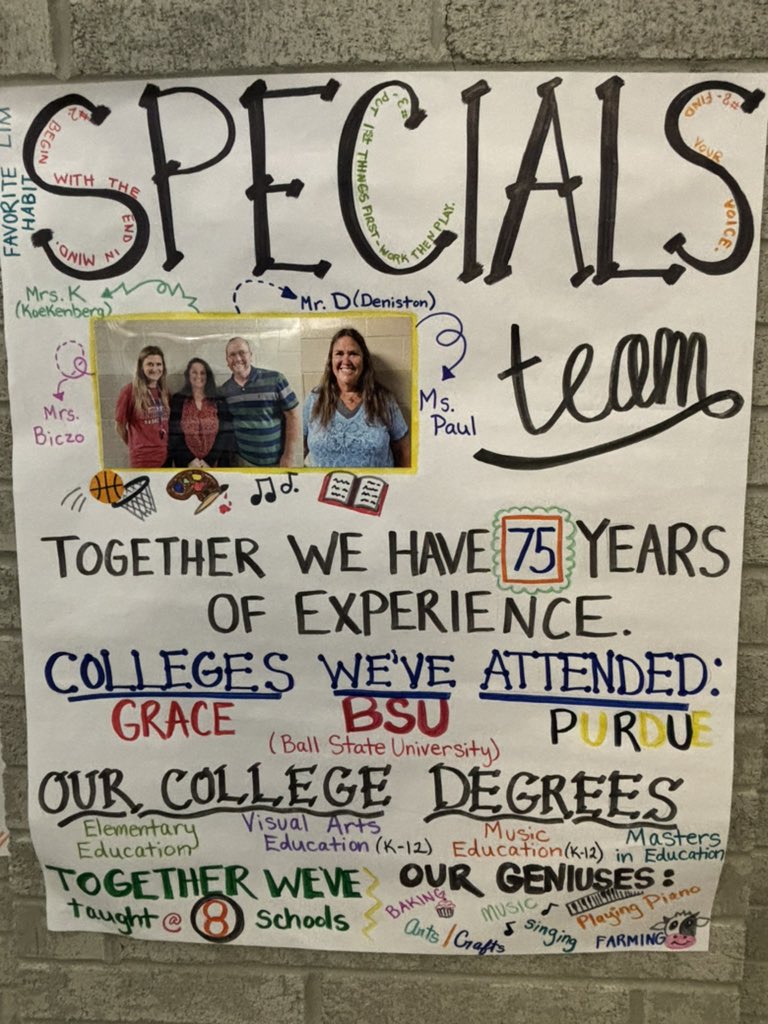 SPECIALS
FAVORITE LIM
HABIT
#2: BEGIN
WITH THE
END IN
MIND.
#3: PUT 1ST THINGS FIRST - WORK THEN PLAY.
#8 - FIND
YOUR
VOICE.
Mrs. K
(Koekenberg)
Mr. D (Deniston)
Mrs.
Biczo
Ms.
Paul
team
TOGETHER WE HAVE 75 YEARS
OF EXPERIENCE.
COLLEGES WE'VE ATTENDED:
GRACE BSU PURDUE
(Ball State University)
OUR COLLEGE DEGREES
Elementary
Education
Visual Arts
Education (K-12)
Music
Education (K-12)
Masters
in Education
TOGETHER WE'VE
taught @ 8 schools
OUR GENIUSES:
BAKING
MUSIC
Playing Piano
Arts / Crafts
singing
FARMING